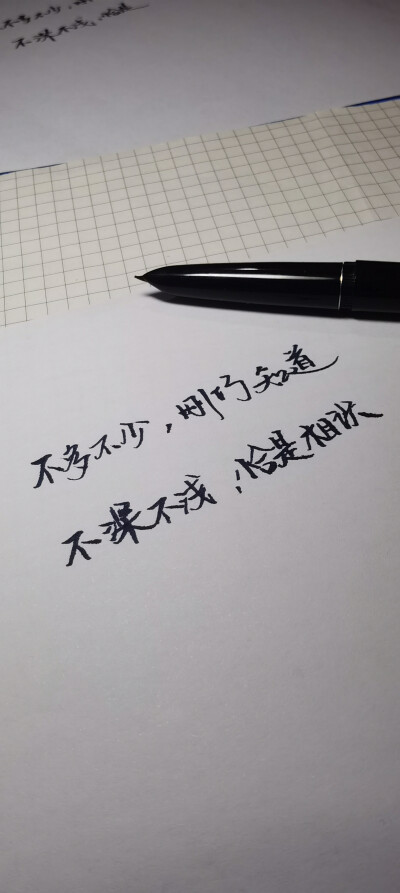 不多不少，
不深不浅，恰是
不多不少，刚巧知道
不深不浅，恰是相识